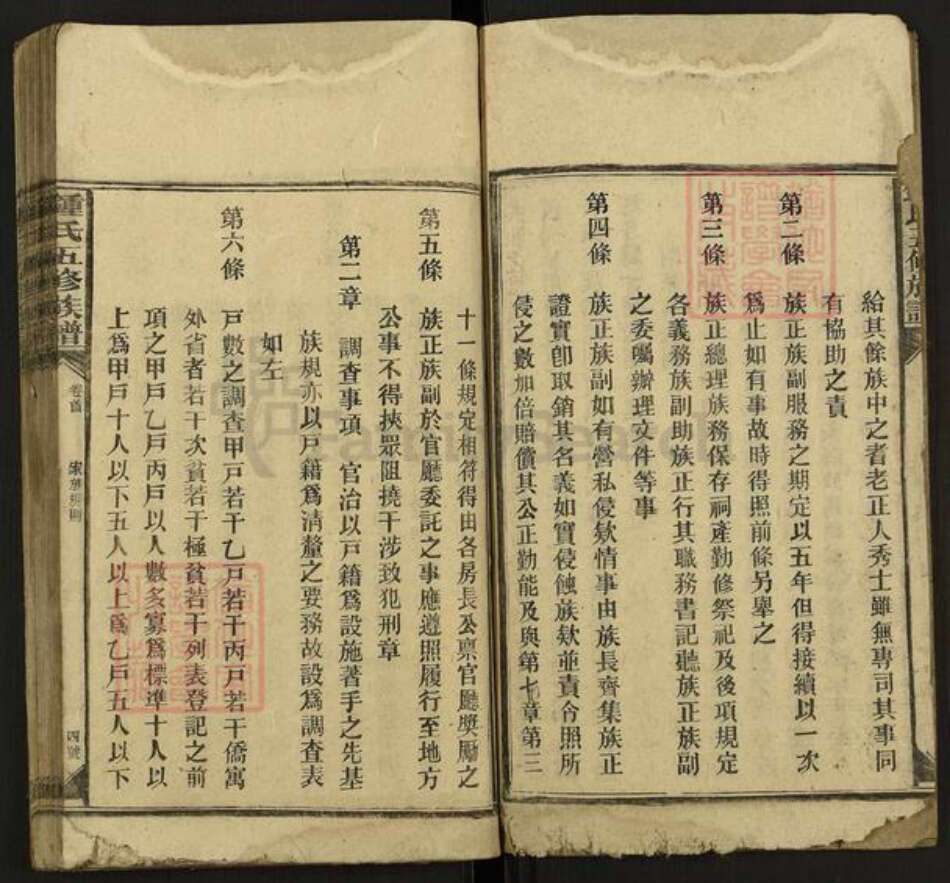 給其餘族中之耆老正人秀士雖無專司其事同
有協助之責
第二條 族正族副服務之期定以五年但得接續以一次
爲止如有事故時得照前條另舉之
第三條 族正總理族務保存祠產勤修祭祀及後項規定
各義務族副助族正行其職務書記聽族正族副
之委囑辦理文件等事
第四條 族正族副如有營私侵欵情事由族長齊集族正
證實卽取銷其名義如實侵蝕族欵並責令照所
侵之數加倍賠償其公正勤能及與第七章第三
十一條規定相符得由各房長公稟官廳奬勵之
第五條 族正族副於官廳委託之事應遵照履行至地方
公事不得挾眾阻撓干涉致犯刑章
第二章 調查事項 官治以戸籍爲設施著手之先基
族規亦以戸籍爲清釐之要務故設爲調查表
如左
第六條 戸數之調查甲戸若干乙戸若干丙戸若干僑寓
外省者若干次貧若干極貧若干列表登記之前
項之甲戸乙戸丙戸以人數多寡爲標準十人以
上爲甲戸十人以下五人以上爲乙戸五人以下
鍾氏五修族譜
卷首
家華規則
四號